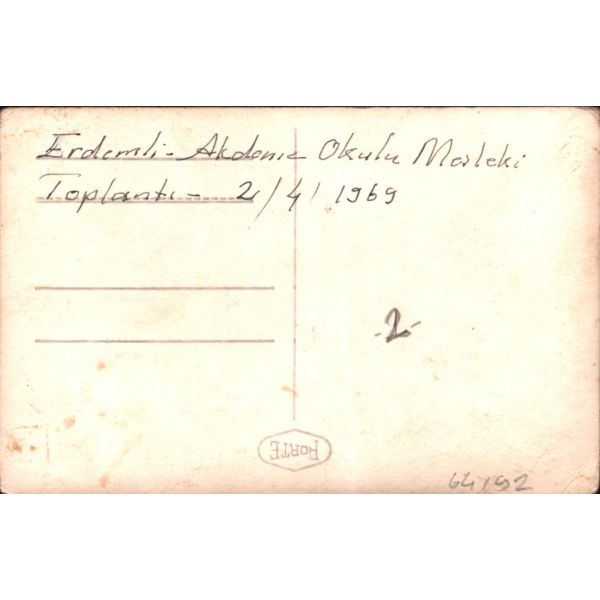 Erdemli - Akdeniz Okulu Mesleki
Toplantı - 2/4/1969
-2-
PORTE
64/92